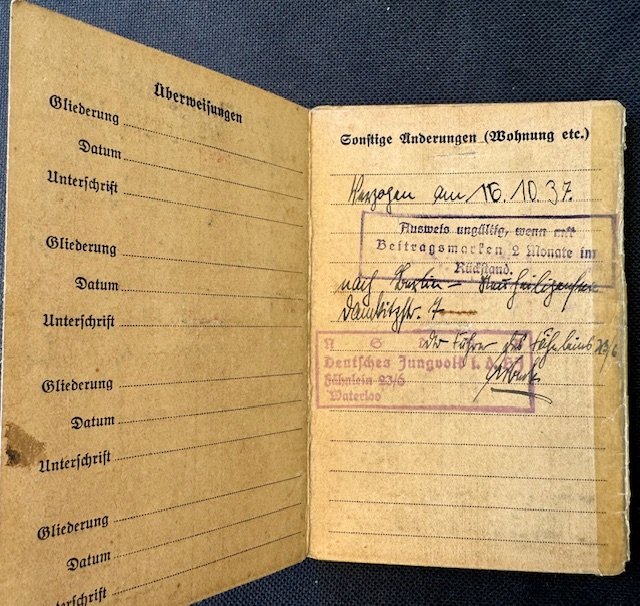 Überweisungen
Gliederung
Datum
Unterschrift
Gliederung
Datum
Unterschrift
Gliederung
Datum
Unterschrift
Gliederung
Datum
Sonstige Änderungen (Wohnung etc.)
Verzogen am 16. 10. 37.
Ausweis ungültig, wenn mit
Beitragsmarken 2 Monate im
Rückstand.
nach Berlin –
7
der Führer des Fähnleins 23/6
Deutsches Jungvolk i. d.
Fähnlein 23/6
Waterloo